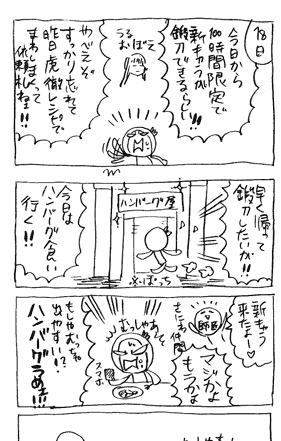 18日
今日から
100時間限定で
新キャラが
鍛刀できるらしい!!
うる
おぼえ
やべえぞ
すっかり忘れて
昨日虎徹レシピで
まわしまくって
依頼札ねぇ!!
早く帰って
鍛刀したいが!!
ハンバーグ屋
※ぼっち
今日は
ハンバーグ食い
行く!!
新キャラ
来たよー♡
師匠
さにわ仲間
マジかよ
もうかよ
むっしゃあ
スマホ
もしやむっちゃ
出やすい!?
ハンバーグうめえ!!!